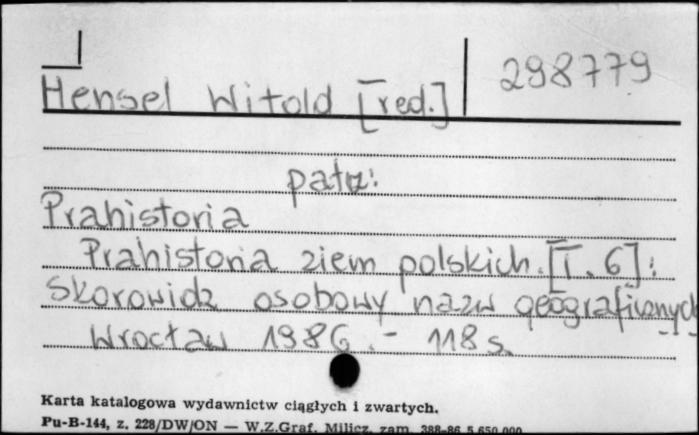 298779
Hensel Witold [red.]
patrz:
Prahistoria
Prahistoria ziem polskich. [T. 6]:
Skorowidz osobowy nazw geograficznych
Wrocław 1986. - 118 s.
Karta katalogowa wydawnictw ciągłych i zwartych.
Pu-B-144, z. 228/DW/ON — W.Z.Graf. Milicz, zam. 388-86 5.650.000